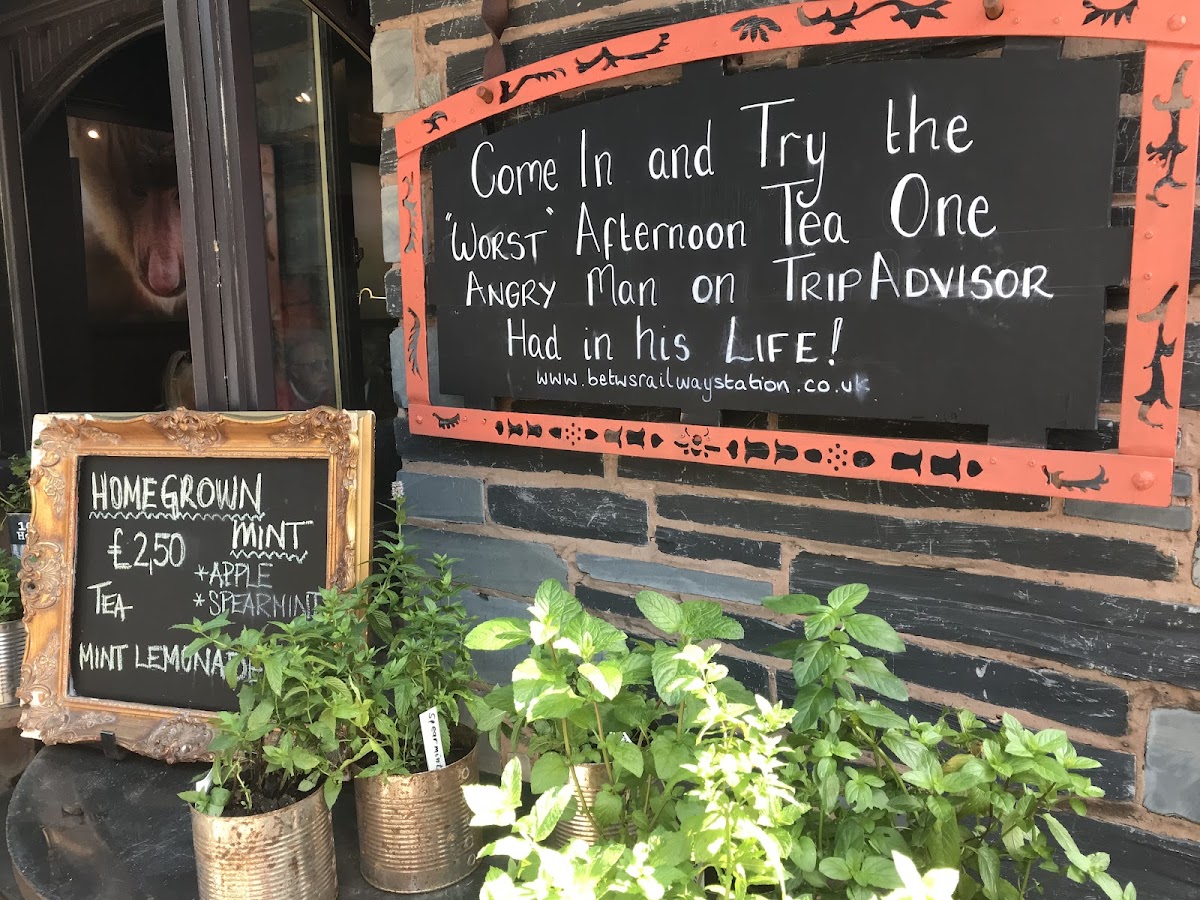 Come In and Try the
"WORST" Afternoon Tea One
ANGRY Man on TRIPADVISOR
Had in his LIFE!
www.betwsrailwaystation.co.uk
HOMEGROWN
MINT
£2,50
*APPLE
*SPEARMINT
TEA
MINT LEMONADE
Spearmint